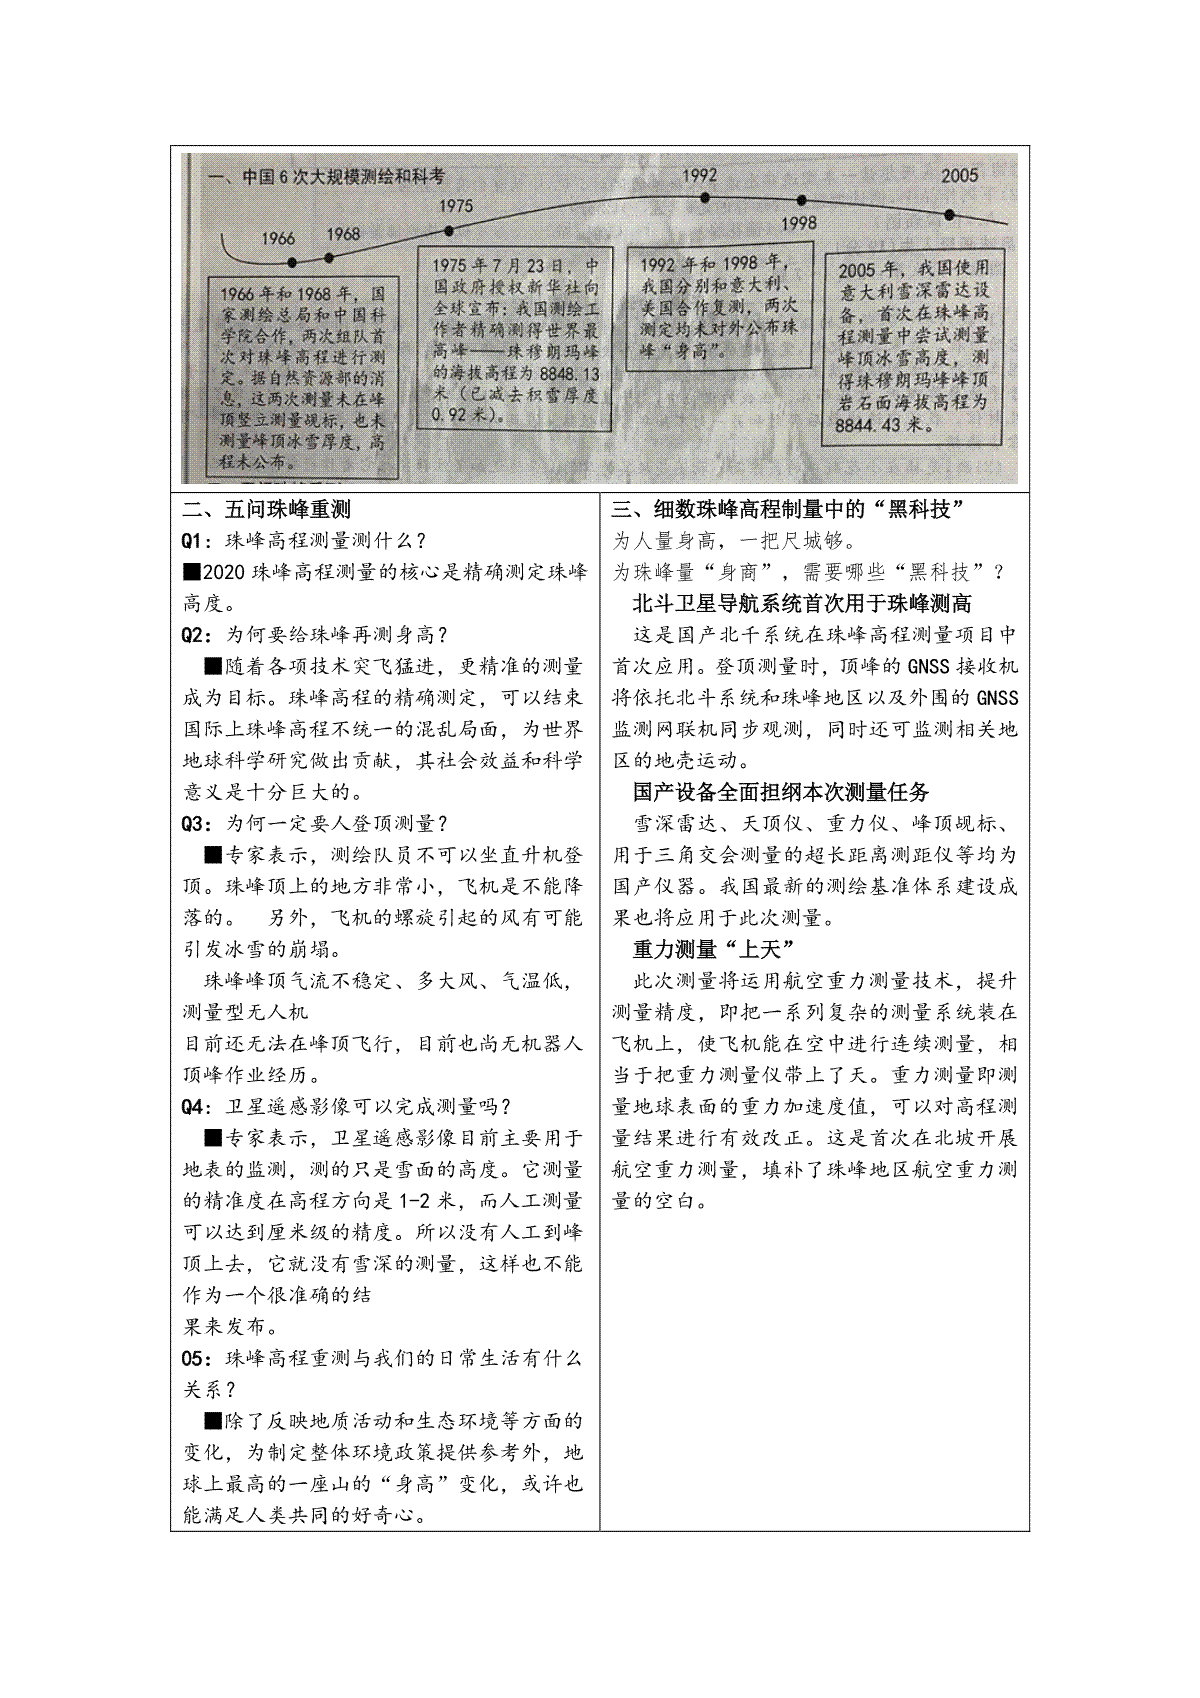 一、中国6次大规模测绘和科考
1966
1968
1975
1992
1998
2005
1966年和1968年，国
家测绘总局和中国科
学院合作，两次组队首
次对珠峰高程进行测
定。据自然资源部的消
息，这两次测量未在峰
顶竖立测量觇标，也未
测量峰顶冰雪厚度，高
程未公布。
1975年7月23日，中
国政府授权新华社向
全球宣布：我国测绘工
作者精确测得世界最
高峰——珠穆朗玛峰
的海拔高程为8848.13
米（已减去积雪厚度
0.92米）。
1992年和1998年，
我国分别和意大利、
美国合作复测，两次
测定均未对外公布珠
峰“身高”。
2005年，我国使用
意大利雪深雷达设
备，首次在珠峰高
程测量中尝试测量
峰顶冰雪高度，测
得珠穆朗玛峰峰顶
岩石面海拔高程为
8844.43米。
二、五问珠峰重测
Q1：珠峰高程测量测什么？
■2020珠峰高程测量的核心是精确测定珠峰
高度。
Q2：为何要给珠峰再测身高？
■随着各项技术突飞猛进，更精准的测量
成为目标。珠峰高程的精确测定，可以结束
国际上珠峰高程不统一的混乱局面，为世界
地球科学研究做出贡献，其社会效益和科学
意义是十分巨大的。
Q3：为何一定要人登顶测量？
■专家表示，测绘队员不可以坐直升机登
顶。珠峰顶上的地方非常小，飞机是不能降
落的。 另外，飞机的螺旋引起的风有可能
引发冰雪的崩塌。
珠峰峰顶气流不稳定、多大风、气温低，
测量型无人机
目前还无法在峰顶飞行，目前也尚无机器人
顶峰作业经历。
Q4：卫星遥感影像可以完成测量吗？
■专家表示，卫星遥感影像目前主要用于
地表的监测，测的只是雪面的高度。它测量
的精准度在高程方向是1-2米，而人工测量
可以达到厘米级的精度。所以没有人工到峰
顶上去，它就没有雪深的测量，这样也不能
作为一个很准确的结
果来发布。
05：珠峰高程重测与我们的日常生活有什么
关系？
■除了反映地质活动和生态环境等方面的
变化，为制定整体环境政策提供参考外，地
球上最高的一座山的“身高”变化，或许也
能满足人类共同的好奇心。
三、细数珠峰高程制量中的“黑科技”
为人量身高，一把尺城够。
为珠峰量“身商”，需要哪些“黑科技”？
北斗卫星导航系统首次用于珠峰测高
这是国产北千系统在珠峰高程测量项目中
首次应用。登顶测量时，顶峰的GNSS接收机
将依托北斗系统和珠峰地区以及外围的GNSS
监测网联机同步观测，同时还可监测相关地
区的地壳运动。
国产设备全面担纲本次测量任务
雪深雷达、天顶仪、重力仪、峰顶觇标、
用于三角交会测量的超长距离测距仪等均为
国产仪器。我国最新的测绘基准体系建设成
果也将应用于此次测量。
重力测量“上天”
此次测量将运用航空重力测量技术，提升
测量精度，即把一系列复杂的测量系统装在
飞机上，使飞机能在空中进行连续测量，相
当于把重力测量仪带上了天。重力测量即测
量地球表面的重力加速度值，可以对高程测
量结果进行有效改正。这是首次在北坡开展
航空重力测量，填补了珠峰地区航空重力测
量的空白。